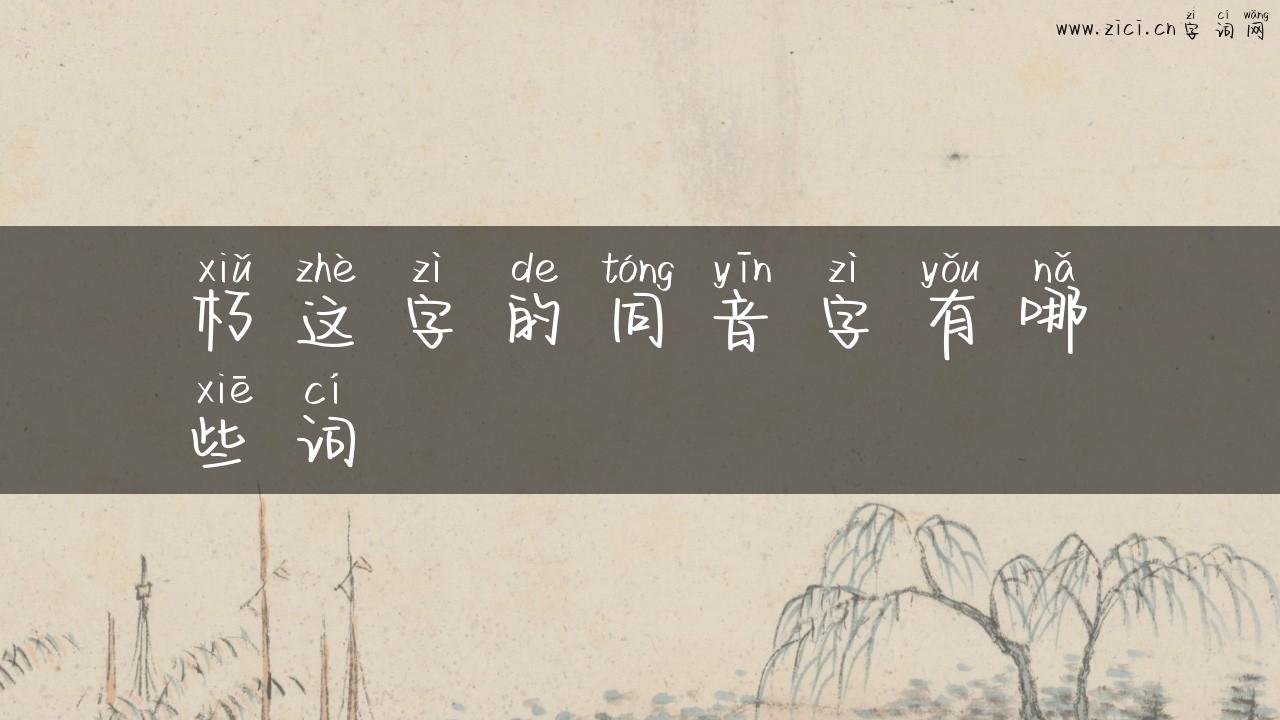 zì cí wǎng
www.zici.cn 字 词 网
xiǔ zhè zì de tóng yīn zì yǒu nǎ
朽 这 字 的 同 音 字 有 哪
xiē cí
些 词